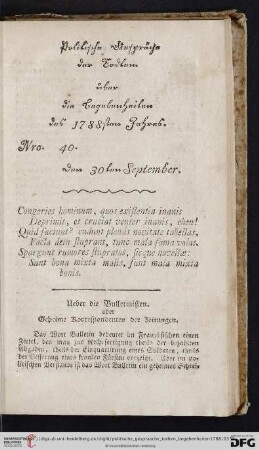 Politische Gespräche
der Todten
über
die Begebenheiten
des 1788sten Jahres.
Nro. 40.
den 30ten September.
Congeries hominum, quos existentia inanis
Deprimit, et cruciat venter inanis, eheu!
Quid faciunt? cudunt plenas novitate tabellas,
Facta dem stuprant, tunc mala fama volat.
Spargunt rumores stupratos, sicque novellæ:
Sunt bona mixta malis, sunt mala mixta
bonis.
Ueber die Bulletinisten,
oder
Geheime Korrespondenten der Zeitungen.
Das Wort Bulletin bedeutet im Französischen einen
Zettel, den man zur Rechtfertigung theils der bezahlten
Abgaben, theils der Einquartirung eines Soldaten, theils
der Besserung eines kranken Fürsten vorzeigt. Aber im po-
litischen Verstande ist das Wort Bulletin ein geheimes Schrei-